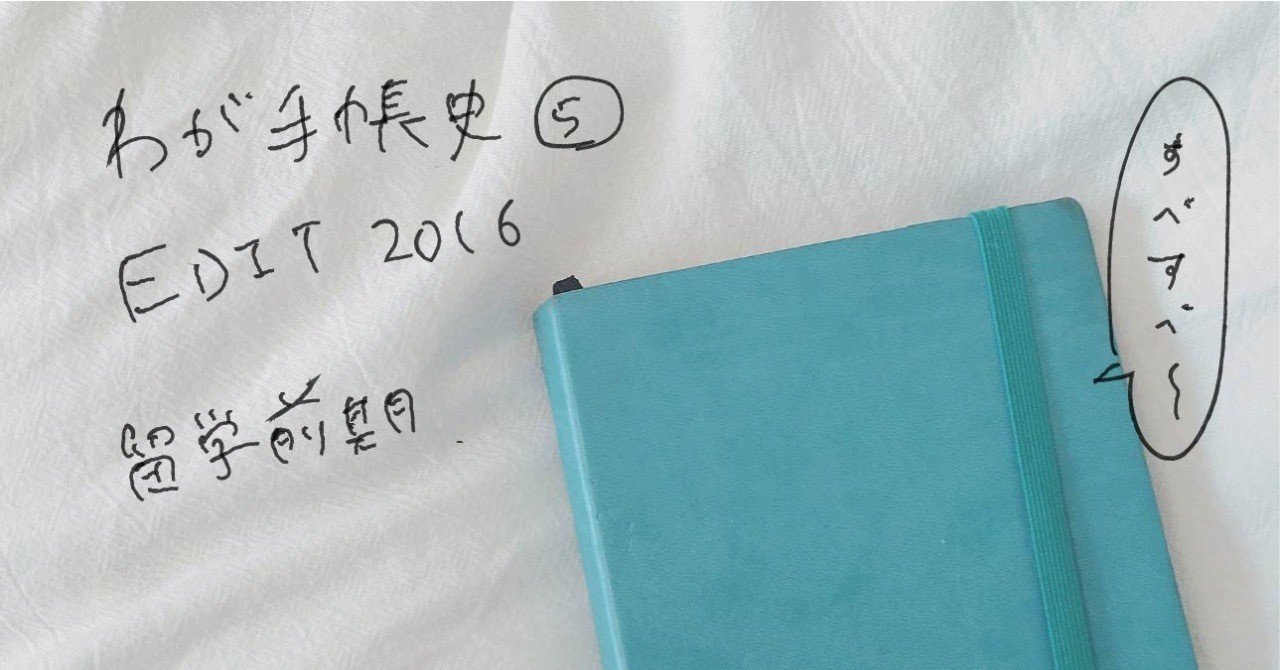 わが手帳史⑤
EDIT 2016
留学前期
すべすべ〜